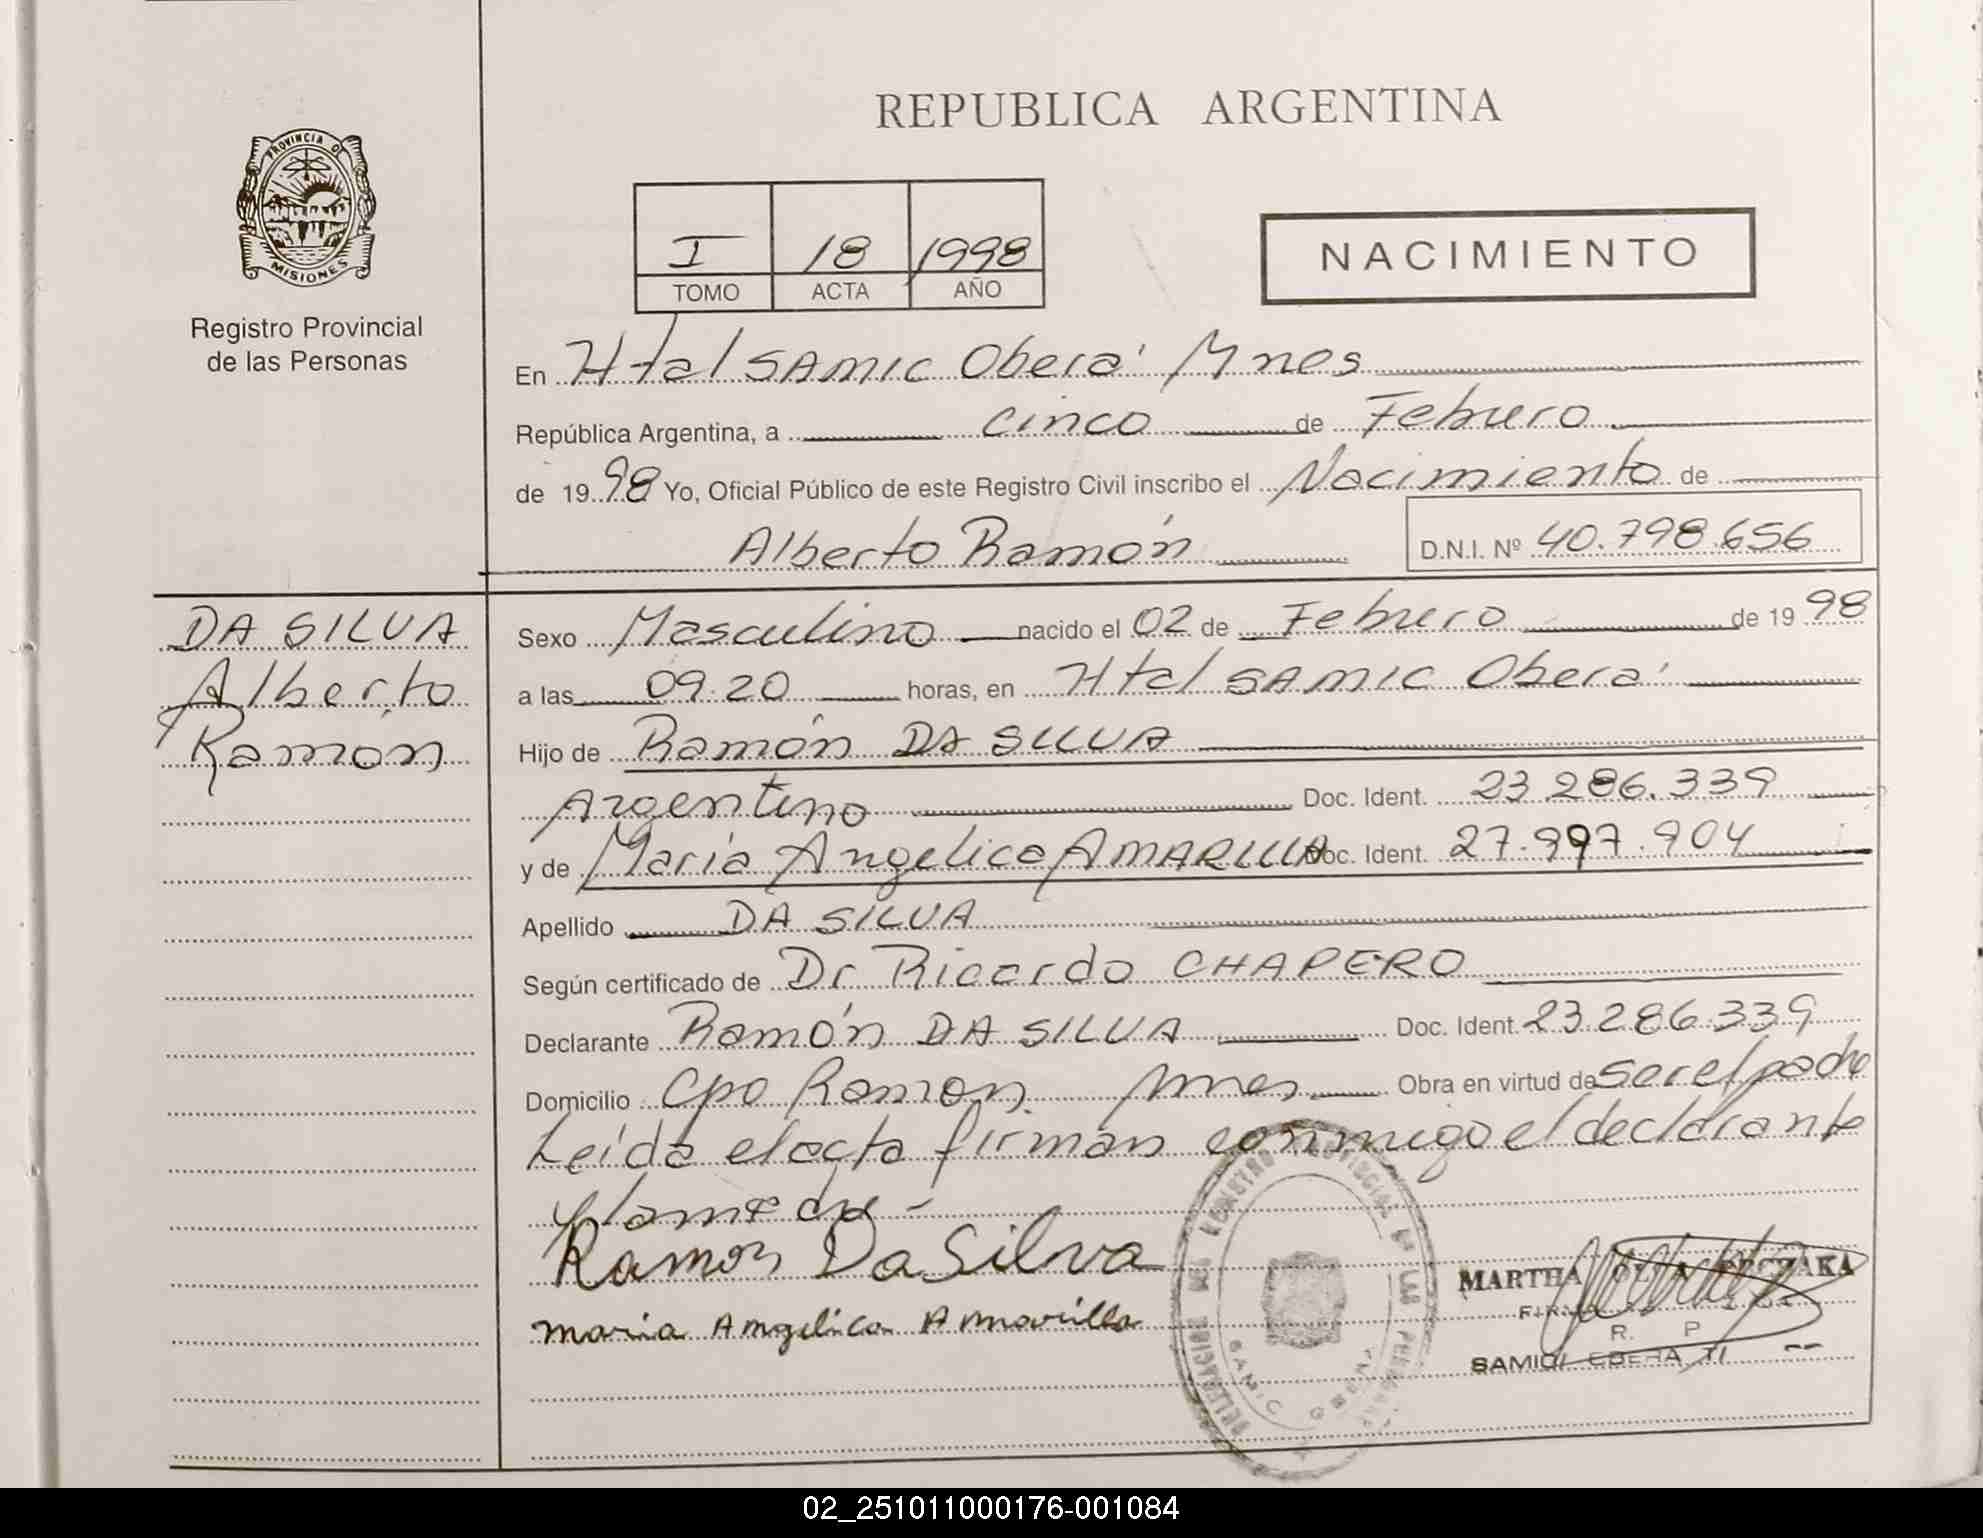 REPUBLICA ARGENTINA
PROVINCIA DE
MISIONES
Registro Provincial
de las Personas
I 18 1998
TOMO ACTA AÑO
NACIMIENTO
En Htal SAMIC Oberá Mnes
República Argentina, a cinco de Febrero
de 1998 Yo, Oficial Público de este Registro Civil inscribo el Nacimiento de
Alberto Ramón D.N.I. Nº 40.798.656
DA SILVA
Alberto
Ramón
Sexo Masculino nacido el 02 de Febrero de 1998
a las 09.20 horas, en Htal SAMIC Oberá
Hijo de Ramón DA SILVA
Argentino Doc. Ident. 23.286.339
y de María Angelica AMARILLA Doc. Ident. 27.997.904
Apellido DA SILVA
Según certificado de Dr Ricardo CHAPERO
Declarante Ramón DA SILVA Doc. Ident. 23.286.339
Domicilio Cpo Ramon Mnes Obra en virtud de ser el padre
Leída el acta firman conmigo el declarante
y la madre -
Ramon Da Silva
maria Angelica Amarilla
DELEGACION DEL REGISTRO PROVINCIAL DE LAS PERSONAS
SAMIC OBERA
MARTHA
R. P
SAMIC
02_251011000176-001084